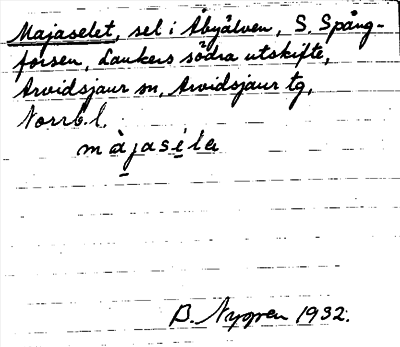 Majaselet, sel i Åbyälven, S. Spång-
forsen, Laukers södra utskifte,
Arvidsjaur sn, Arvidsjaur tg,
Norrb. l.
màjasèla
B. Nygren 1932.